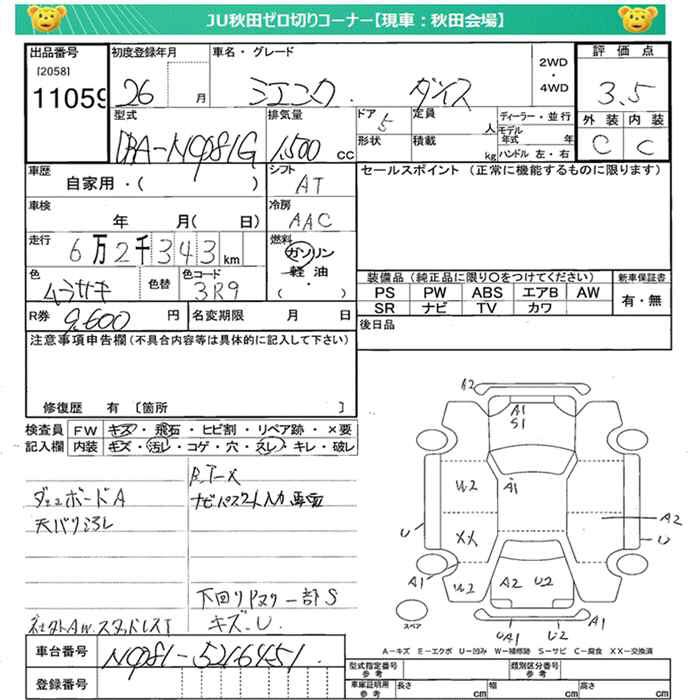 JU秋田ゼロ切りコーナー【現車：秋田会場】
出品番号
[2058]
11059
初度登録年月
26 月
車名・グレード
シエンタ ダイス
2WD
・
4WD
評価点
3.5
外装 内装
C C
型式
DBA-NCP81G
排気量
1,500 cc
ドア
5
形状
定員
人
積載
kg
ディーラー・並行
モデル
年式 年
ハンドル 左・右
車歴
自家用・( )
シフト
AT
車検
年 月( 日)
冷房
AAC
走行
6万2千343km
燃料
ガソリン
軽油
( ・ )
色
ムラサキ
色替
色コード
3R9
R券
9,600 円
名変期限 月 日
セールスポイント(正常に機能するものに限ります)
装備品(純正品に限り〇をつけてください)
新車保証書
PS PW ABS エアB AW
SR ナビ TV カワ
有・無
後日品
注意事項申告欄(不具合内容等は具体的に記入して下さい)
修復歴 有 [箇所 ]
検査員
記入欄
FW キズ・飛石・ヒビ割・リペア跡・×要
内装 キズ・汚レ・コゲ・穴・スレ・キレ・破レ
ダッシュボードA
天バリヨゴレ
Bカメ
ナビパスワード入力画面
下回りサビ一部S
キズ・U
社外AW スタッドレスT
A2
A1
S1
W2
A1
XX
U
A1
W2
A2
U2
A2
U
UA1
U2
A1
スペア
A－キズ E－エクボ U－凹み W－補修跡 S－サビ C－腐食 XX－交換済
車台番号
NCP81-5216451
登録番号
型式指定番号
参考
類別区分番号
参考
車庫証明用
参考
長さ cm
幅 cm
高さ cm